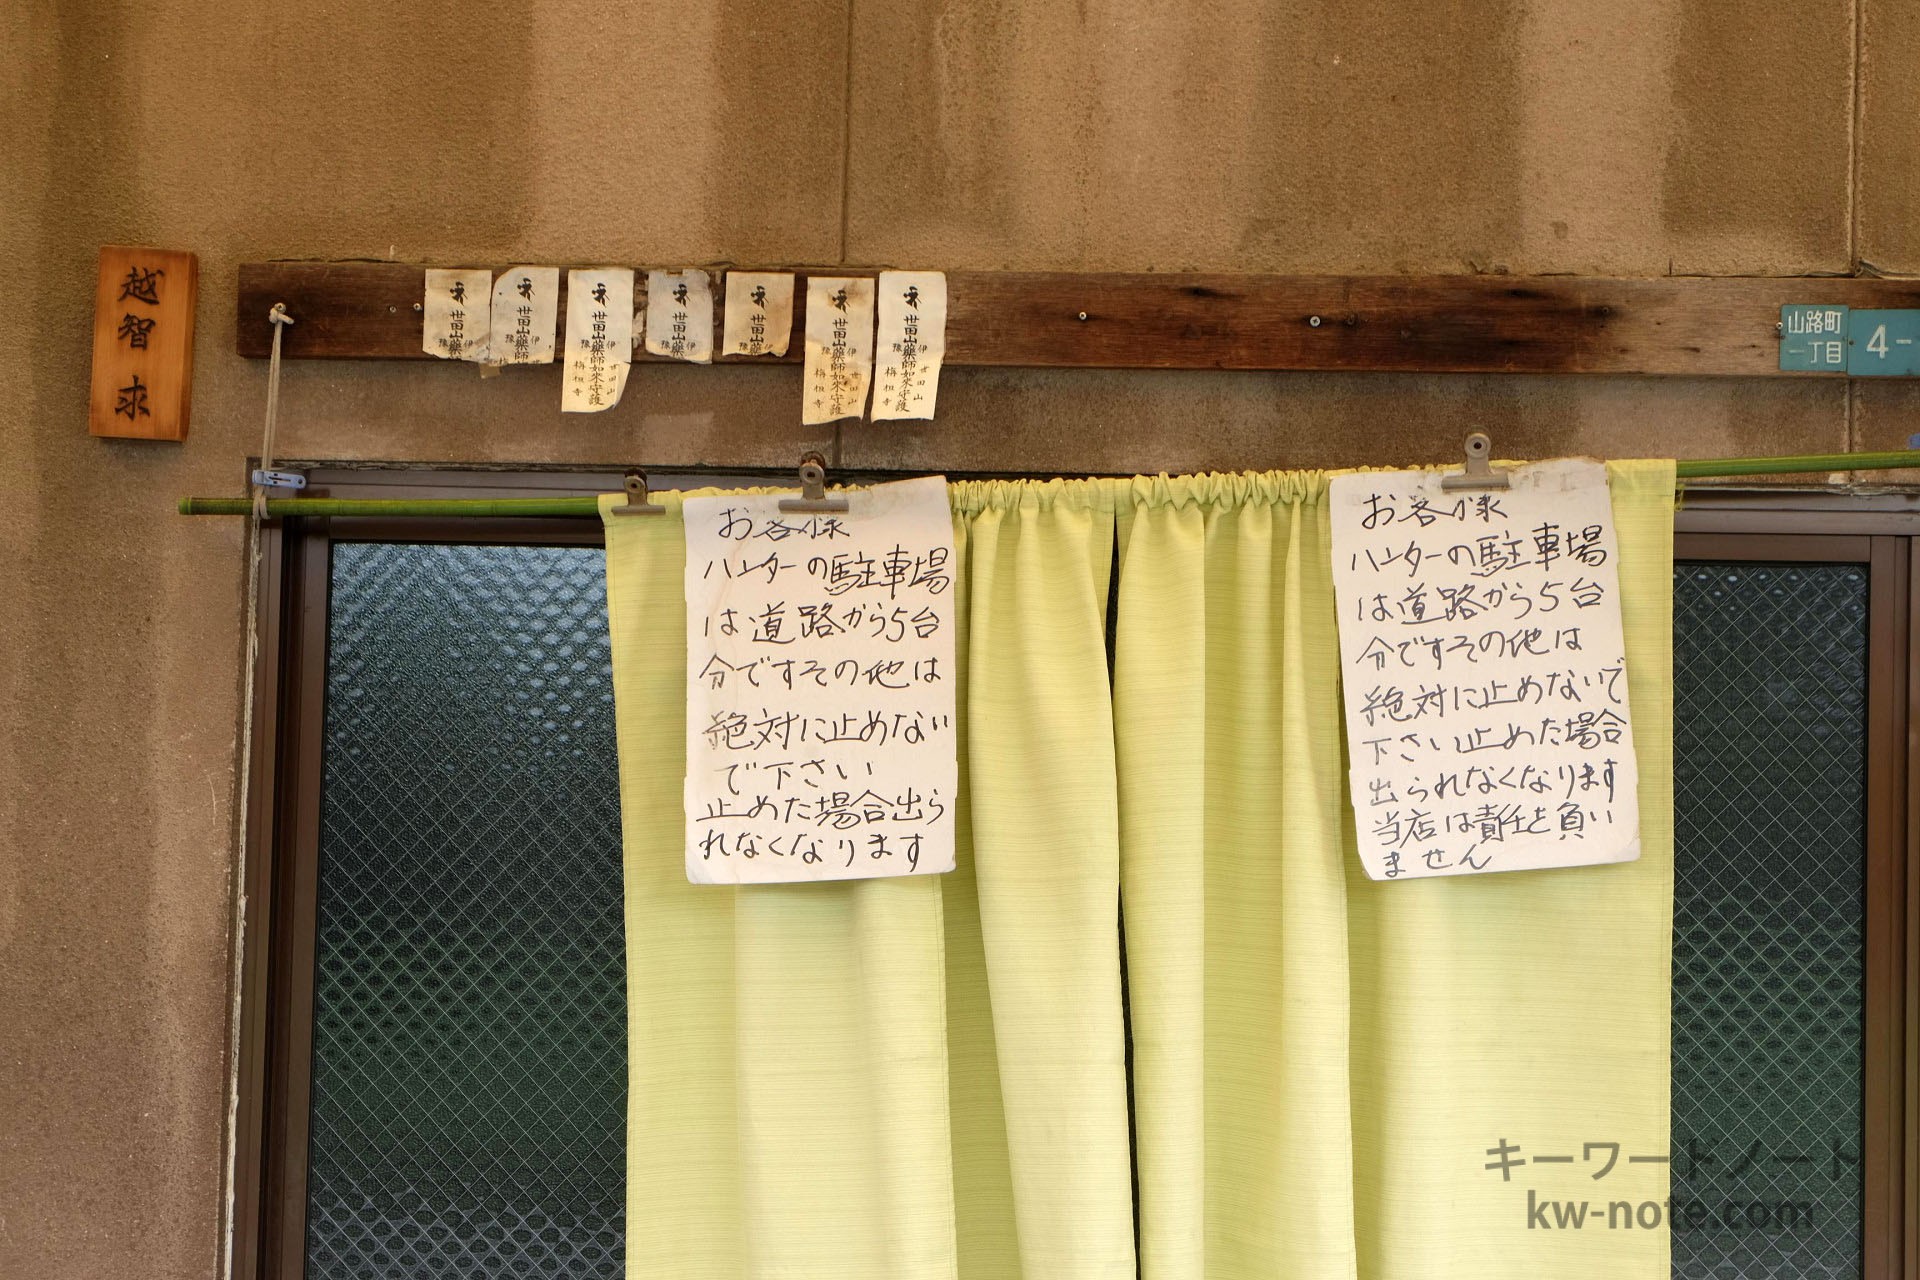 越智求
世田山藥
伊豫
世田山藥師
伊豫
世田山藥師如来守護
伊豫
世田山
栴檀寺
世田山藥
伊豫
世田山藥
世田山藥師如来守護
伊豫
世田山
栴檀寺
世田山藥師如来守護
伊豫
世田山
栴檀寺
山路町
一丁目
4-
お客様
ハンターの駐車場
は道路から5台
分ですその他は
絶対に止めない
で下さい
止めた場合出ら
れなくなります
お客様
ハンターの駐車場
は道路から5台
分ですその他は
絶対に止めないで
下さい止めた場合
出られなくなります
当店は責任を負い
ません
キーワードノート
kw-note.com